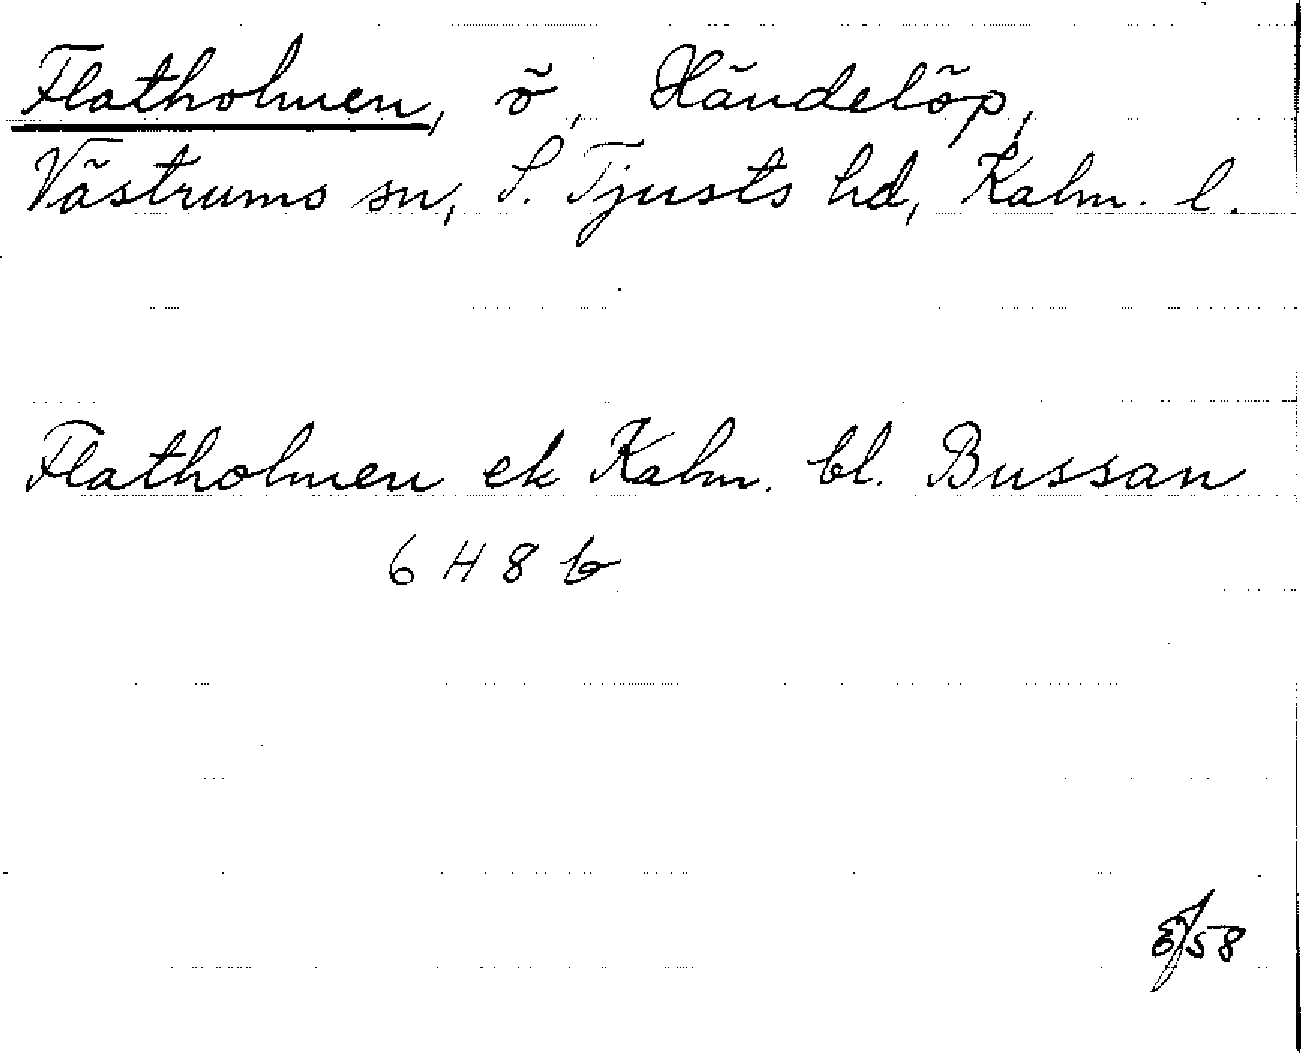 Flatholmen, ö, Händelöp,
Västrums sn, S. Tjusts hd, Kalm. l.
Flatholmen ek Kalm. bl. Bussan
6 H 8 b
58